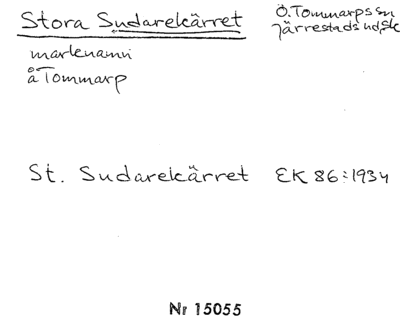 Stora Sudarekärret
Ö. Tommarps sn
Järrestads hd, Sk
marknamn
å Tommarp
St. Sudarekärret EK 86:1934
Nr 15055